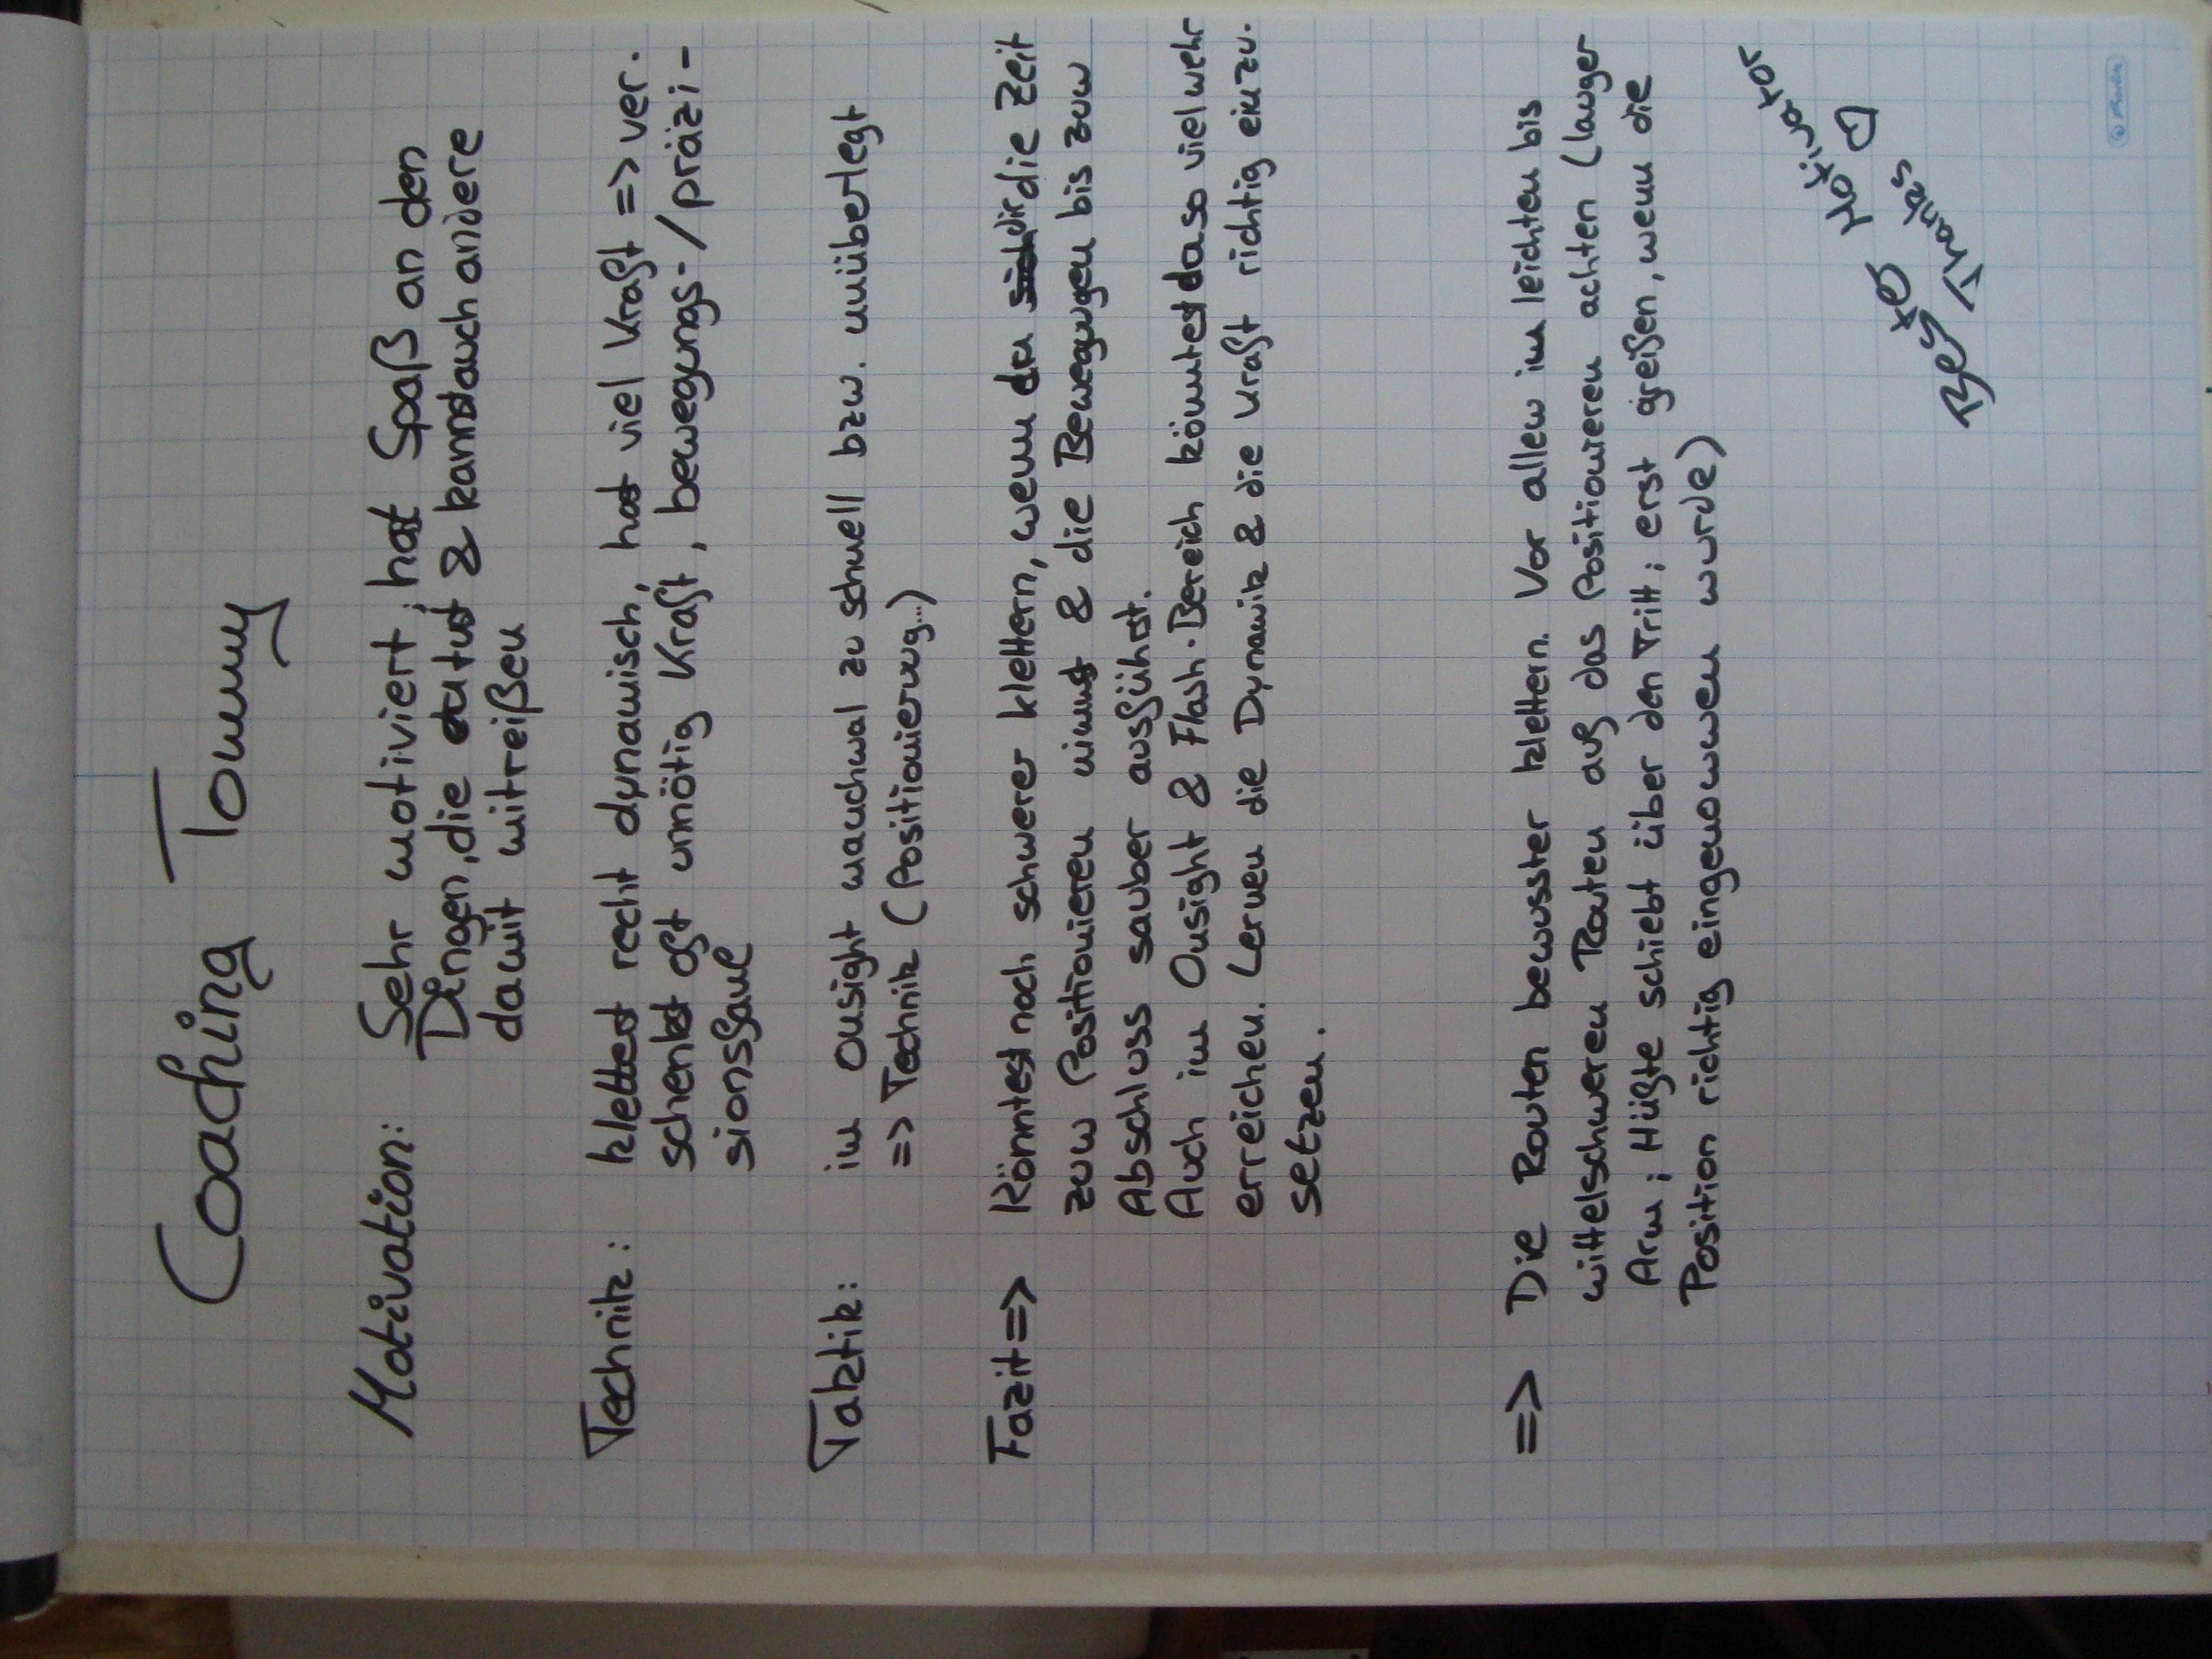 Coaching Tommy
Motivation: Sehr motiviert; hast Spaß an den
Dingen, die du tust & kannst auch andere
damit mitreißen
Technik: kletterst recht dynamisch, hast viel Kraft => ver-
schenkst oft unnötig Kraft, bewegungs-/präzi-
sionsfaul
Taktik: im Onsight manchmal zu schnell bzw. unüberlegt
=> Technik (Positionierung...)
Fazit => Könntest noch schwerer klettern, wenn du dir die Zeit
zum Positionieren nimmst & die Bewegungen bis zum
Abschluss sauber ausführst.
Auch im Onsight & Flash-Bereich könntest da so viel mehr
erreichen. Lernen die Dynamik & die Kraft richtig einzu-
setzen.
=> Die Routen bewusster klettern. Vor allem im leichten bis
mittelschweren Routen auf das Positionieren achten (langer
Arm; Hüfte schiebt über den Tritt; erst greifen, wenn die
Position richtig eingenommen wurde)
Motivator
Thanks